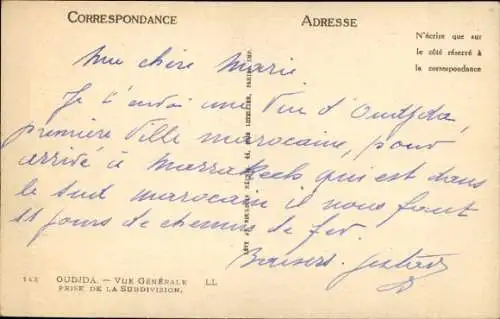 CORRESPONDANCE
ADRESSE
N'écrire que sur
le côté réservé à
la correspondance
Ma chère Marie
Je t'envoi une Vue d'Oudjda,
première Ville marocaine, pour
arrivé à Marrakech qui est dans
le sud marocain il nous faut
11 jours de chemin de fer.
Baisers. Gustave
OUDJDA. — VUE GÉNÉRALE
PRISE DE LA SUBDIVISION.
LL